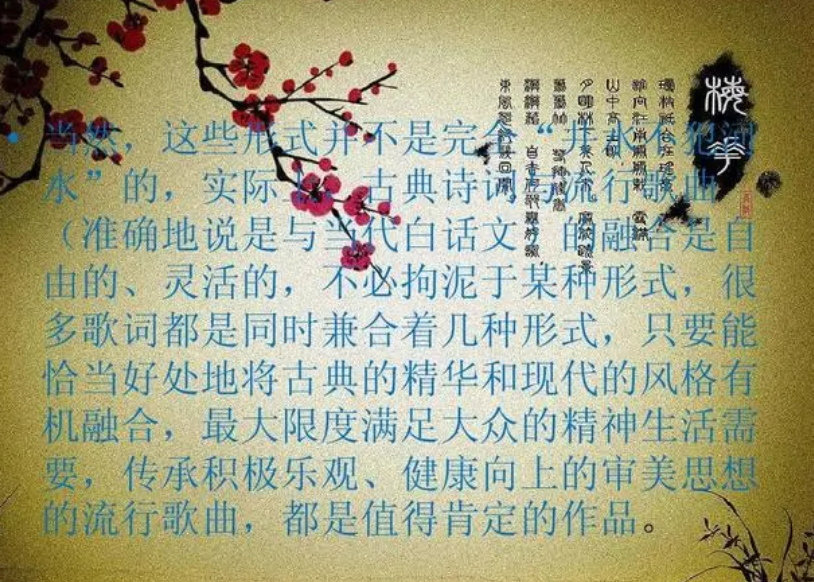 梅花
当然，这些形式并不是完全“井水不犯河
水”的，实际上，古典诗词与流行歌曲
（准确地说是与当代白话文）的融合是自
由的、灵活的，不必拘泥于某种形式，很
多歌词都是同时兼合着几种形式，只要能
恰当好处地将古典的精华和现代的风格有
机融合，最大限度满足大众的精神生活需
要，传承积极乐观、健康向上的审美思想
的流行歌曲，都是值得肯定的作品。